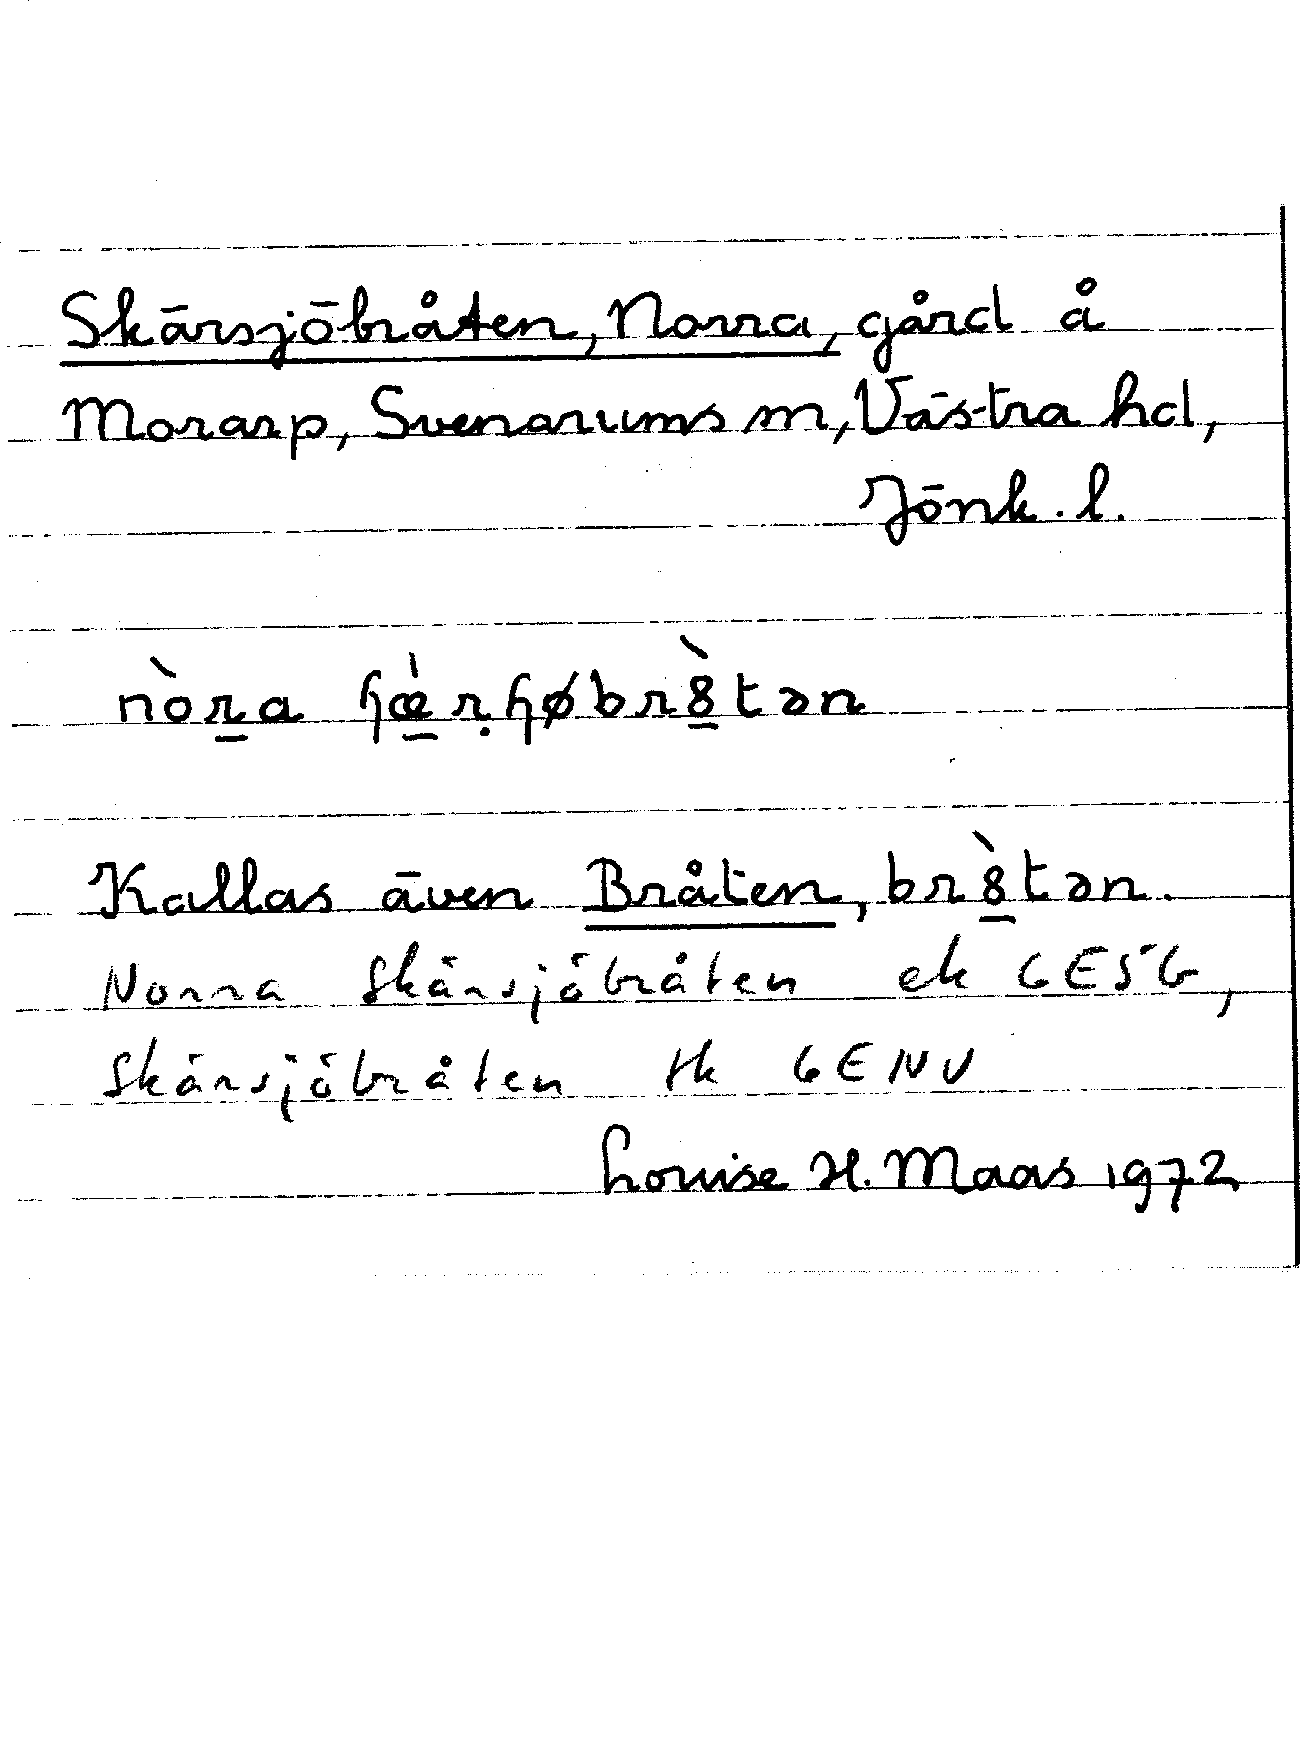 Skärsjöbråten, Norra, gård å
Morarp, Svenarums sn, Västra hd,
Jönk. l.
nòra ɧæ̀rɧøbrȣ̀tən
Kallas även Bråten, brȣ̀tən.
Norra Skärsjöbråten ek 6E5G,
Skärsjöbråten tk 6ENV
Louise H. Maas 1972